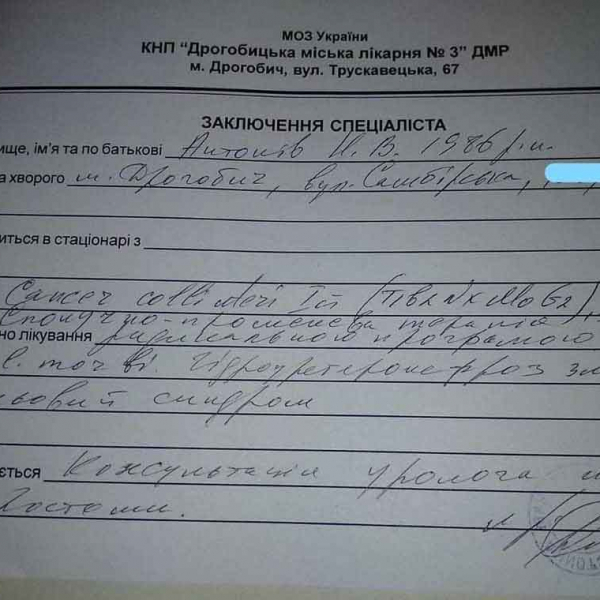 МОЗ України
КНП "Дрогобицька міська лікарня № 3" ДМР
м. Дрогобич, вул. Трускавецька, 67
ЗАКЛЮЧЕННЯ СПЕЦІАЛІСТА
ище, ім'я та по батькові Антонів Н. В. 1986 р.н.
а хворого м. Дрогобич, вул. Самбірська,
иться в стаціонарі з
Cancer colli uteri (T1b2NxM0G2)
Сполучно-променева терапія
но лікування радикальною програмою
в. точ ві. Гідроуретеронефроз
ьовий синдром
ється Консультація уролога